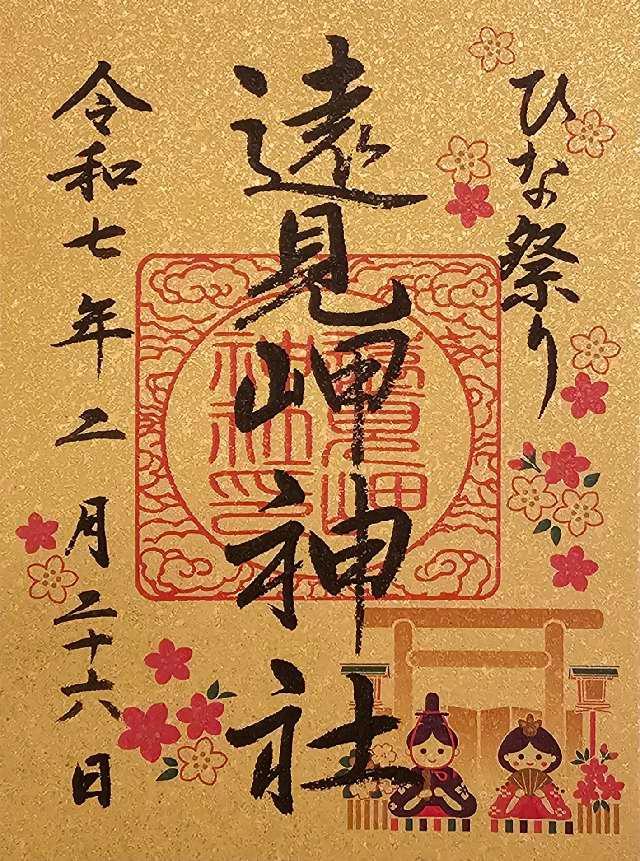 ひな祭り
遠見岬神社
令和七年二月二十六日